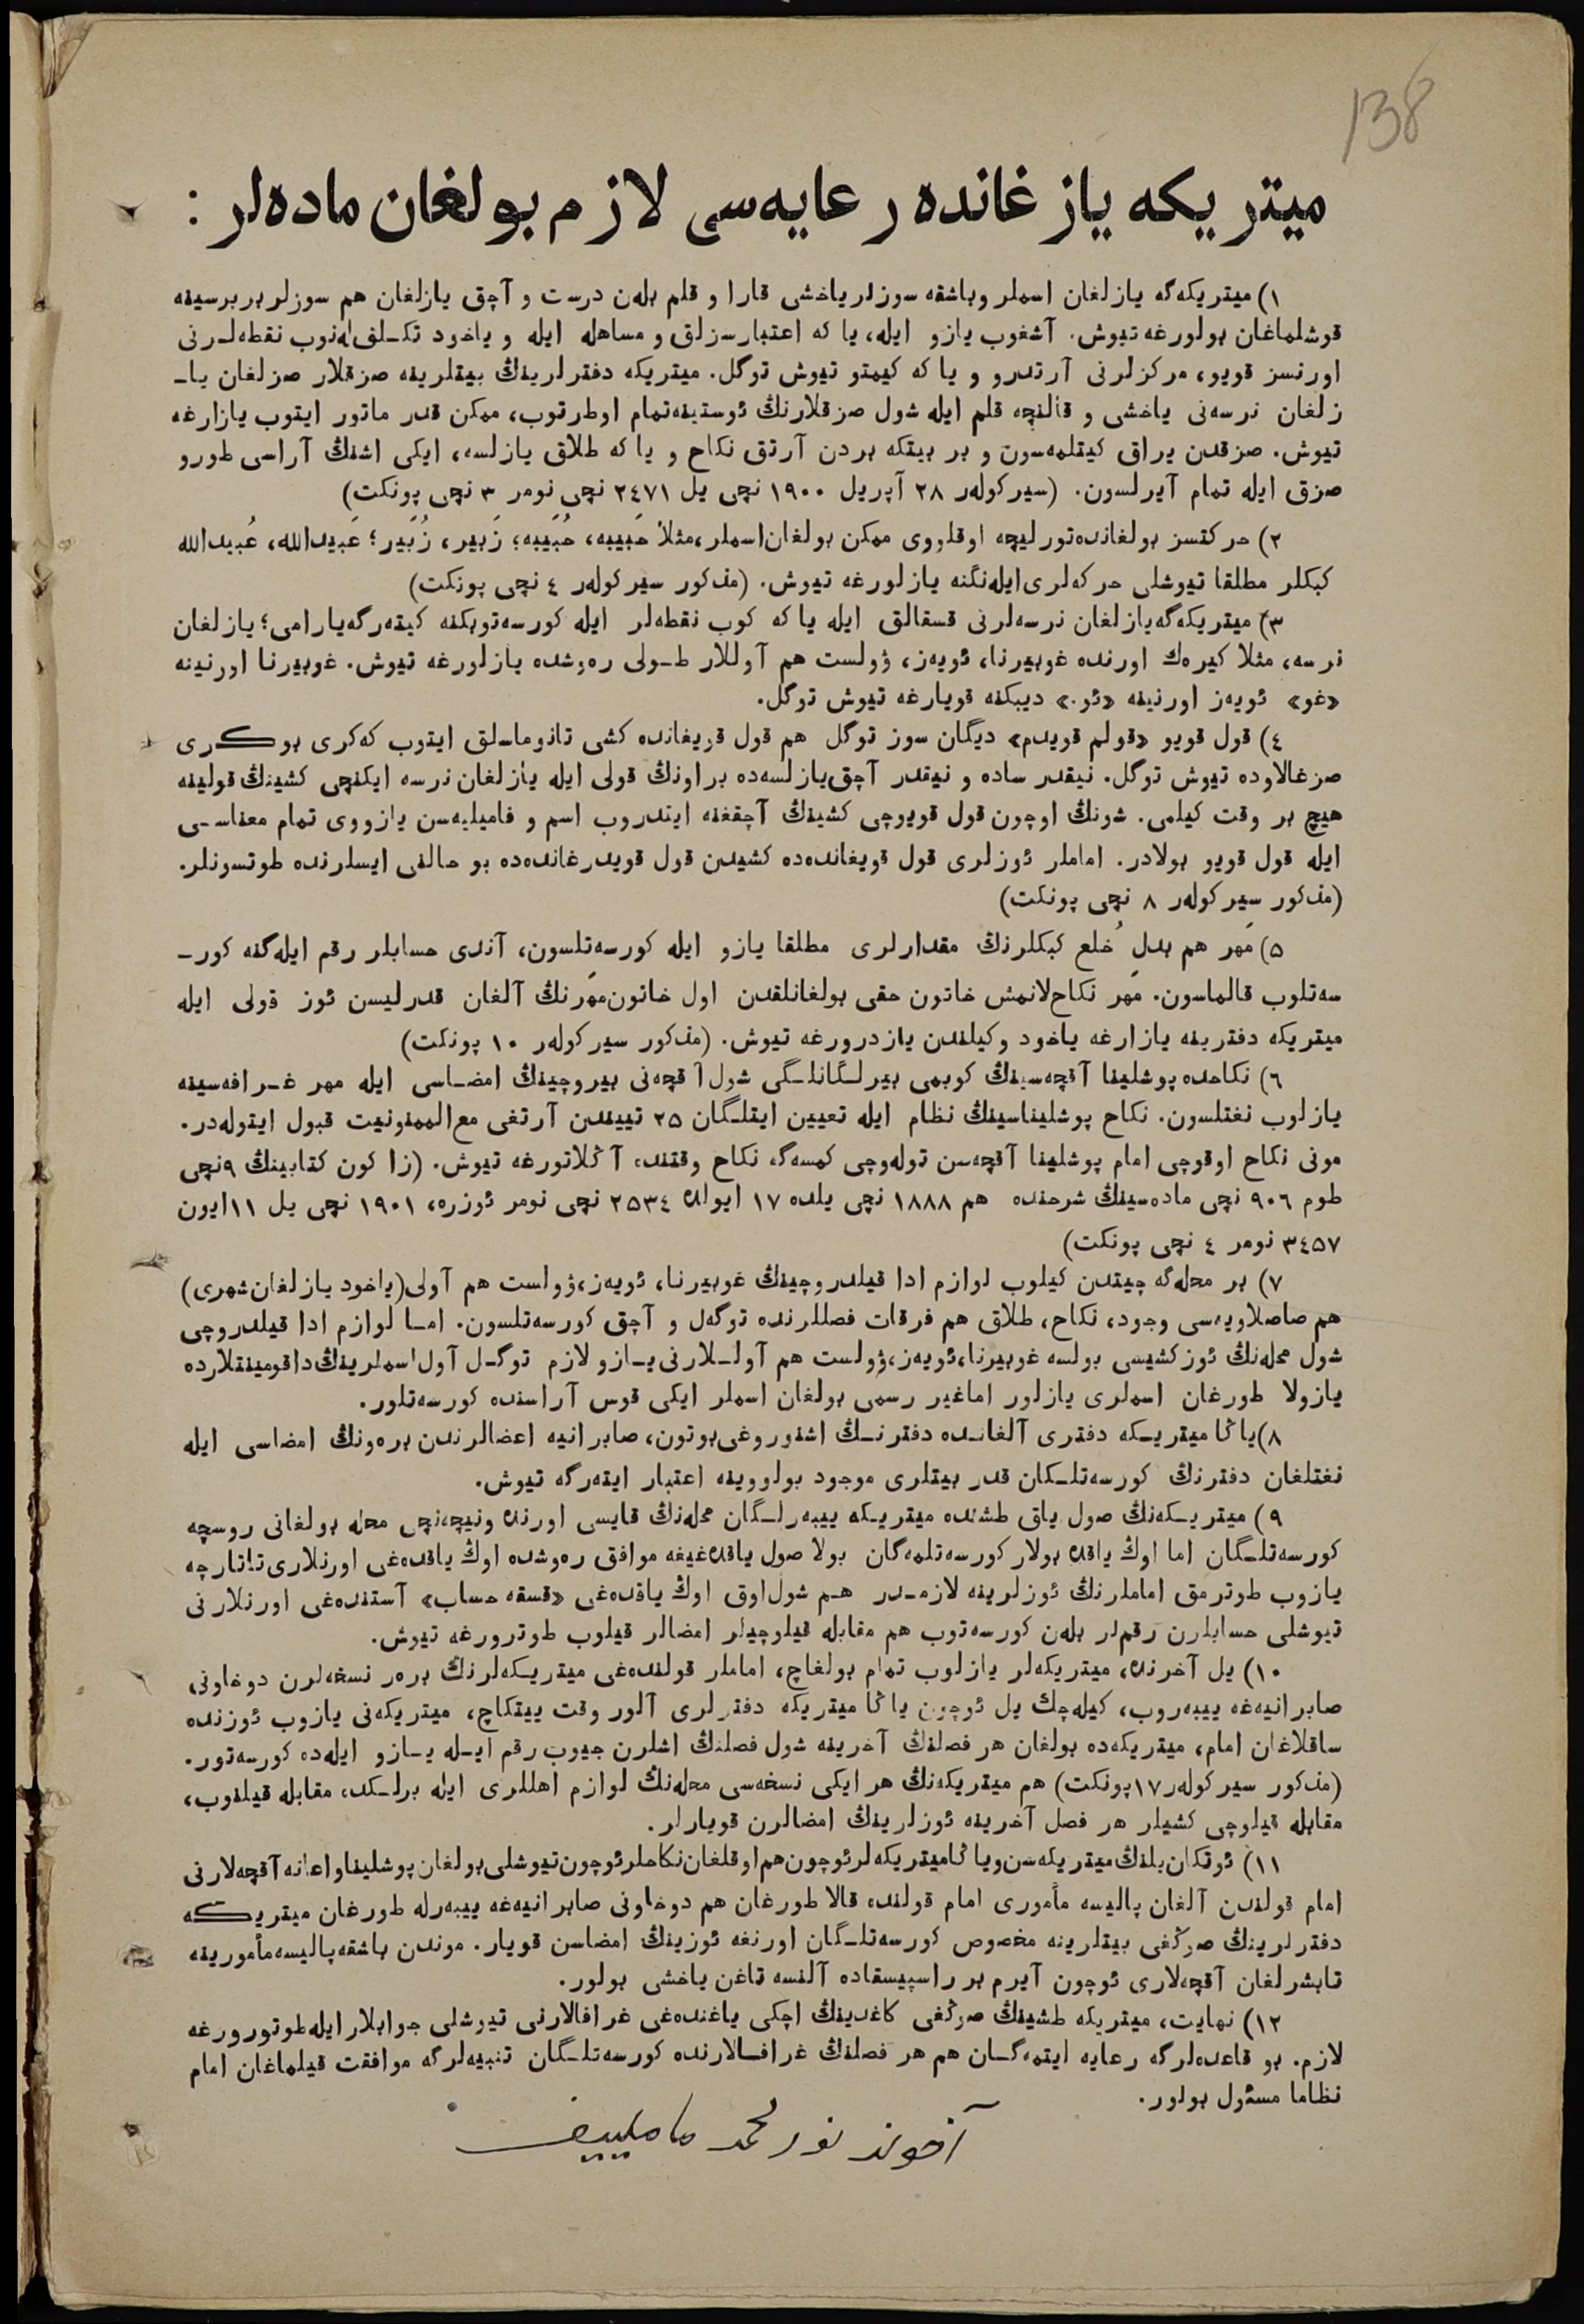 138
ميتريكه يازغانده رعايه‌سى لازم بولغان ماده‌لر :
١) ميتريكه‌گه يازلغان اسملر وباشقه سوزلر ياخشى قارا و قلم بلەن درست و آچق يازلغان هم سوزلر بربرسينه
قوشلماغان بولورغه تيوش. آشغوب يازو ايله، يا كه اعتبارسزلق و مساهله ايله و ياخود تكـلف‌له‌نوب نقطه‌لـرنى
اورنسز قويو، مركزلرنى آرتدرو و يا كه كيمتو تيوش توگل. ميتريكه دفترلرينڭ بيتلرينه صزقلار صزلغان يا-
زلغان نرسه‌نى ياخشى و قالنچه قلم ايله شول صزقلارنڭ ئوستينه‌تمام اوطرتوب، ممكن قدر ماتور ايتوب يازارغه
تيوش. صزقدن يراق كيتلمه‌سون و بر بيتكه بردن آرتق نكاح و يا كه طلاق يازلسه، ايكى اشنڭ آراسى طورو
صزق ايله تمام آيرلسون. (سيركولەر ٢٨ آپريل ١٩٠٠ نچى يل ٢٤٧١ نچى نومر ٣ نچى پونكت)
٢) حركتسز بولغانده‌تورليچه اوقلووى ممكن بولغان‌اسملر،مثلاً حَبيبه، حُبَيبه؛ زَبير، زُبَير؛ عَبيدالله، عُبيدالله
كبكلر مطلقا تيوشلى حركه‌لرى‌ايله‌نگنه يازلورغه تيوش. (مذكور سيركولەر ٤ نچى پونكت)
٣) ميتريكه‌گه‌يازلغان نرسه‌لرنى قسقالق ايله يا كه كوب نقطه‌لر ايله كورسه‌توبكنه كيته‌رگه‌يارامى؛ يازلغان
نرسه، مثلا كيره‌ك اورنده غوبيرنا، ئويەز، ۋولست هم آوللار طـولى ره‌وشده يازلورغه تيوش. غوبيرنا اورنينه
«غو» ئويەز اورنينه «ئو.» ديبكنه قويارغه تيوش توگل.
٤) قول قويو «قولم قويدم» ديگان سوز توگل هم قول قويغانده كشى تانوماسلق ايتوب كه‌كرى بوكـرى
صزغالاوده تيوش توگل. نيقدر ساده و نيقدر آچق‌يازلسه‌ده براونڭ قولى ايله يازلغان نرسه ايكنچى كشينڭ قولينه
هيچ بر وقت كيلمى. شونڭ اوچون قول قويوچى كشينڭ آچقغنه ايتدروب اسم و فاميليه‌سن يازووى تمام معناسـى
ايله قول قويو بولادر. اماملر ئوزلرى قول قويغانده‌ده كشيدن قول قويدرغانده‌ده بو حالنى ايسلرنده طوتسونلر.
(مذكور سيركولەر ٨ نچى پونكت)
٥) مَهر هم بدل خُلع كبكلرنڭ مقدارلرى مطلقا يازو ايله كورسه‌تلسون، آندى حسابلر رقم ايله‌گنه كور-
سه‌تلوب قالماسون. مَهر نكاح‌لانمش خاتون حقى بولغانلقدن اول خاتون‌مَهرنڭ آلغان قدرليسن ئوز قولى ايله
ميتريكه دفترينه يازارغه ياخود وكيلندن يازدرورغه تيوش. (مذكور سيركولەر ١٠ پونكت)
٦) نكاحده پوشلينا آقچه‌سينڭ كوبمى بيرلـگانلـگى شول آقچه‌نى بيروچينڭ امضـاسى ايله مهر غـرافه‌سينه
يازلوب نغتلسون. نكاح پوشليناسينڭ نظام ايله تعيين ايتلـگان ٢٥ تييندن آرتغى مع‌الممنونيت قبول ايتوله‌در.
مونى نكاح اوقوچى امام پوشلينا آقچه‌سن توله‌وچى كمسه‌گه نكاح وقتنده آڭلاتورغه تيوش. (زاكون كتابينڭ ٩نچى
طوم ٩٠٦ نچى ماده‌سينڭ شرحنده هم ١٨٨٨ نچى يلده ١٧ ايولده ٢٥٣٤ نچى نومر ئوزره، ١٩٠١ نچى يل ١١ايون
٣٤٥٧ نومر ٤ نچى پونكت)
٧) بر محله‌گه چيتدن كيلوب لوازم ادا قيلدروچينڭ غوبيرنا، ئويەز،ۋولست هم آولى(ياخود يازلغان‌شهرى)
هم صاصلاويه‌سى وجود، نكاح، طلاق هم فرقات فصللرنده توگه‌ل و آچق كورسه‌تلسون. امـا لوازم ادا قيلدروچى
شول محله‌نڭ ئوزكشيسى بولسه غوبيرنا،ئويەز،ۋولست هم آولـلارنى يـازو لازم توگـل آول‌اسملرينڭ‌داقومينتلارده
يازولا طورغان اسملرى يازلور اماغير رسمى بولغان اسملر ايكى قوس آراسنده كورسه‌تلور.
٨)ياڭا ميتريـكه دفترى آلغانـده دفترنـڭ اشنوروغى‌بوتون، صابرانيه اعضالرندن بره‌ونڭ امضاسى ايله
نغتلغان دفترنڭ كورسه‌تلـكان قدر بيتلرى موجود بولووينه اعتبار ايته‌رگه تيوش.
٩) ميتريـكه‌نڭ صول ياق طشنده ميتريـكه ييبه‌رلـگان محله‌نڭ قايسى اورنده ونيچه‌نچى محله بولغانى روسچه
كورسه‌تلـگان اما اوڭ ياقده بولار كورسه‌تلمه‌گان بولا صول ياقده‌غيغه موافق ره‌وشده اوڭ ياقده‌غى اورنلارى‌تاتارچه
يازوب طوترمق اماملرنڭ ئوزلرينه لازمـدر هـم شول‌اوق اوڭ ياقده‌غى «قسقه حساب» آستنده‌غى اورنلارنى
تيوشلى حسابلرن رقملر بلەن كورسه‌توب هم مقابله قيلوچيلر امضالر قيلوب طوترورغه تيوش.
١٠) يل آخرنده، ميتريكه‌لر يازلوب تمام بولغاچ، اماملر قولنده‌غى ميتريـكه‌لرنڭ بره‌ر نسخه‌لرن دوخاونى
صابرانيه‌غه ييبه‌روب، كيله‌چك يل ئوچون ياڭا ميتريكه دفترلرى آلور وقت ييتكاچ، ميتريكه‌نى يازوب ئوزنده
ساقلاغان امام، ميتريكه‌ده بولغان هر فصلنڭ آخرينه شول فصلنڭ اشلرن جيوب رقم ايـله يـازو ايله‌ده كورسه‌تور.
(مذكور سيركولەر ١٧پونكت) هم ميتريكه‌نڭ هر ايكى نسخه‌سى محله‌نڭ لوازم اهللرى ايله برلـكده مقابله قيلنوب،
مقابله قيلوچى كشيلر هر فصل آخرينه ئوزلرينڭ امضالرن قويارلر.
١١) ئوتكان‌يلنڭ‌ميتريكه‌سن‌وياڭاميتريكه‌لرئوچون‌هم‌اوقلغان‌نكاحلرئوچون‌تيوشلى‌بولغان‌پوشليناواعانه آقچه‌لارنى
امام قولندن آلغان پاليسه مأمورى امام قولنده قالا طورغان هم دوخاونى صابرانيه‌غه ييبه‌رله طورغان ميتريـكه
دفترلرينڭ صوڭغى بيتلرينه مخصوص كورسه‌تلـگان اورنغه ئوزينڭ امضاسن قويار. موندن باشقه‌پاليسه‌مأمورينه
تابشرلغان آقچه‌لارى ئوچون آيرم بر راسپيسقاده آلنسه تاغن ياخشى بولور.
١٢) نهايت، ميتريكه طشينڭ صوڭغى كاغدينڭ اچكى ياغنده‌غى غرافالارنى تيوشلى جوابلار ايله‌طوتورورغه
لازم. بو قاعده‌لرگه رعايه ايتمه‌گـان هم هر فصلنڭ غرافـالارنده كورسه‌تلـگان تنبيه‌لرگه موافقت قيلماغان امام
نظاما مسئول بولور.
آخوند نورمحمد ماملييف